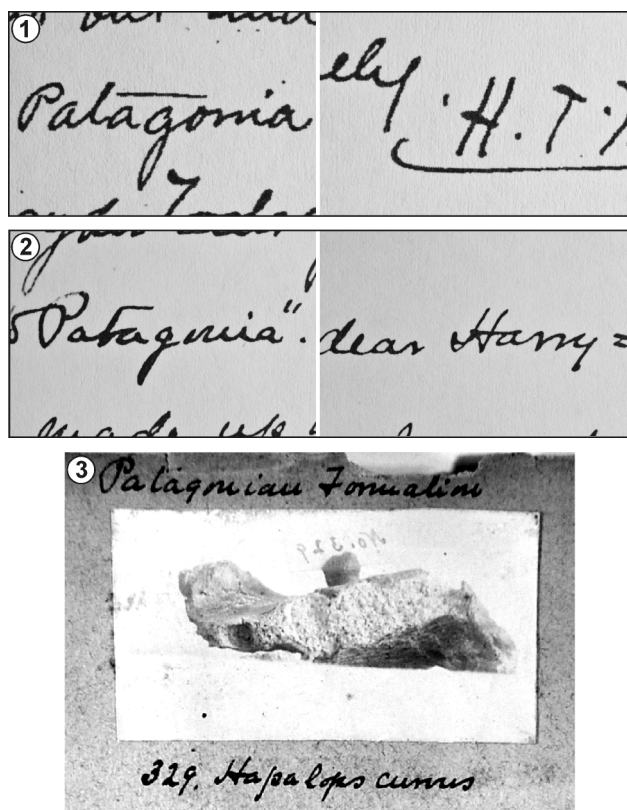 1
Patagonia
ely H. T.
2
"Patagonia".
dear Harry =
made up
3
Patagonian Formation
No. 329
329. Hapalops curvus